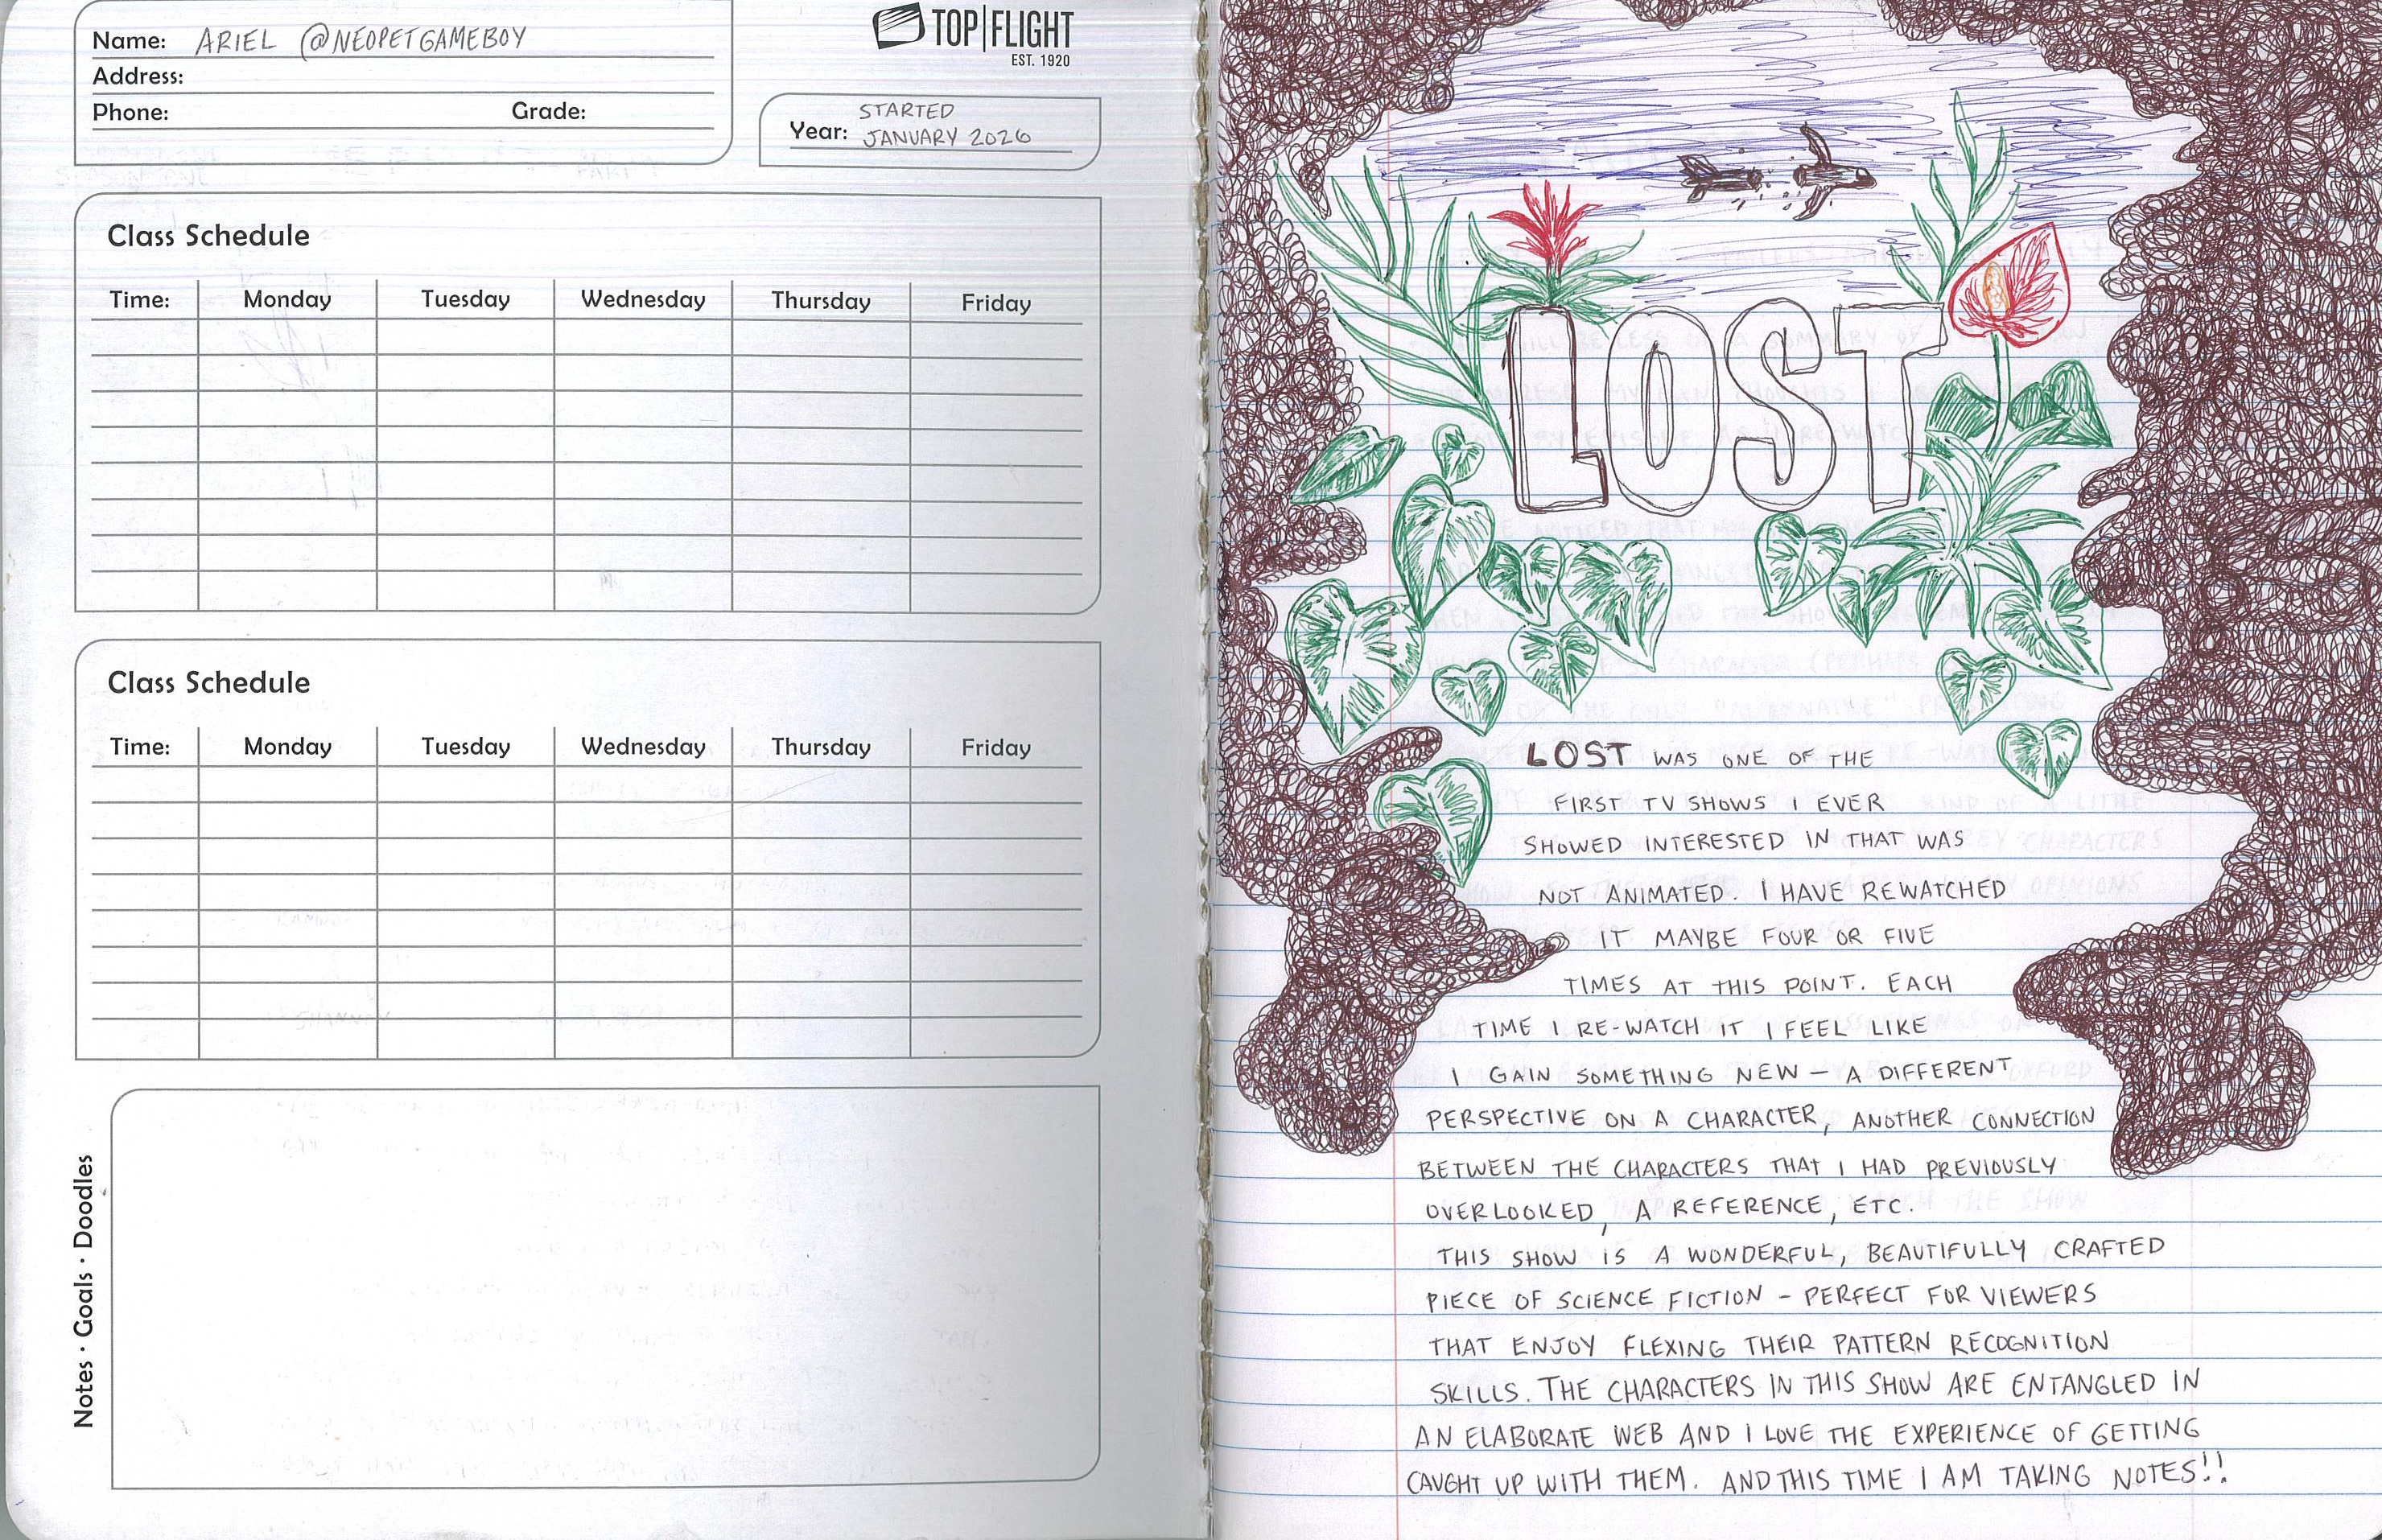 Name: ARIEL (@NEOPETGAMEBOY
Address:
Phone: Grade:
TOP|FLIGHT
EST. 1920
STARTED
Year: JANUARY 2026
Class Schedule
Time: Monday Tuesday Wednesday Thursday Friday
Class Schedule
Time: Monday Tuesday Wednesday Thursday Friday
Notes · Goals · Doodles
LOST
LOST WAS ONE OF THE
FIRST TV SHOWS I EVER
SHOWED INTERESTED IN THAT WAS
NOT ANIMATED. I HAVE REWATCHED
IT MAYBE FOUR OR FIVE
TIMES AT THIS POINT. EACH
TIME I RE-WATCH IT I FEEL LIKE
I GAIN SOMETHING NEW – A DIFFERENT
PERSPECTIVE ON A CHARACTER, ANOTHER CONNECTION
BETWEEN THE CHARACTERS THAT I HAD PREVIOUSLY
OVERLOOKED, A REFERENCE, ETC.
THIS SHOW IS A WONDERFUL, BEAUTIFULLY CRAFTED
PIECE OF SCIENCE FICTION – PERFECT FOR VIEWERS
THAT ENJOY FLEXING THEIR PATTERN RECOGNITION
SKILLS. THE CHARACTERS IN THIS SHOW ARE ENTANGLED IN
AN ELABORATE WEB AND I LOVE THE EXPERIENCE OF GETTING
CAUGHT UP WITH THEM. AND THIS TIME I AM TAKING NOTES!!